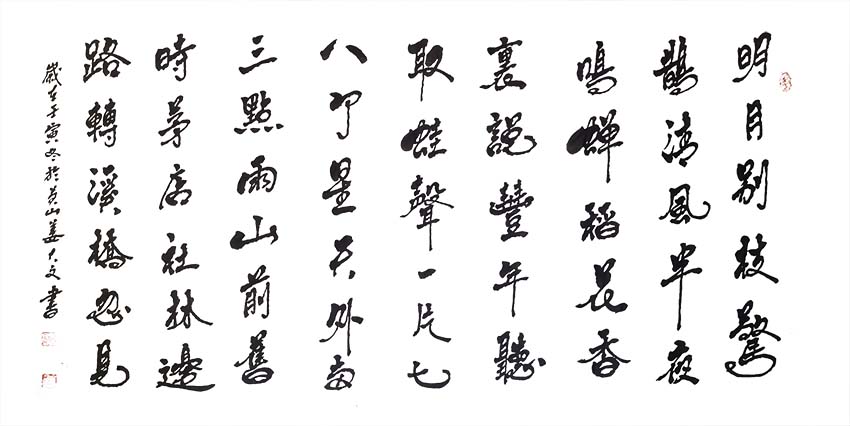 明月别枝驚
鵲清風半夜
鳴蟬稻花香
裏說豐年聽
取蛙聲一片七
八个星天外兩
三點雨山前舊
時茅店社林邊
路轉溪橋忽見
歲在壬寅冬於黄山姜大文書